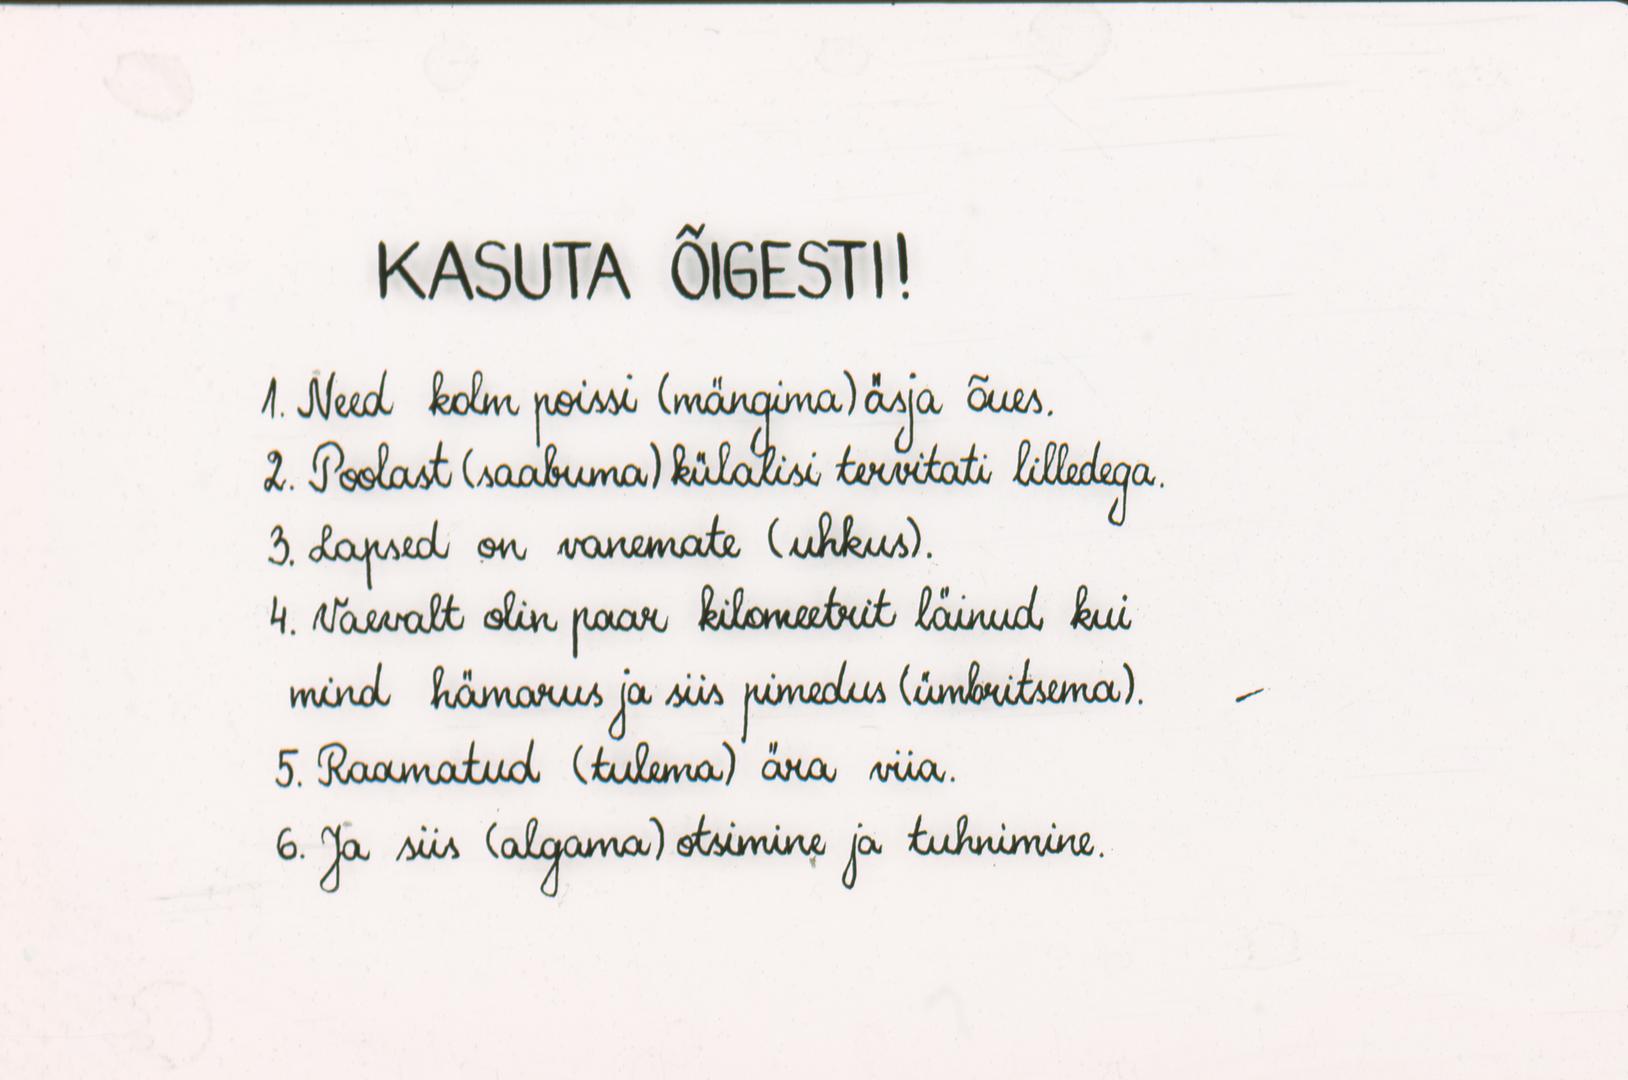 KASUTA ÕIGESTI!
1. Need kolm poissi (mängima) äsja õues.
2. Poolast (saabuma) külalisi tervitati lilledega.
3. Lapsed on vanemate (uhkus).
4. Vaevalt olin paar kilomeetrit läinud kui
mind hämarus ja siis pimedus (ümbritsema).
5. Raamatud (tulema) ära viia.
6. Ja siis (algama) otsimine ja tuhnimine.